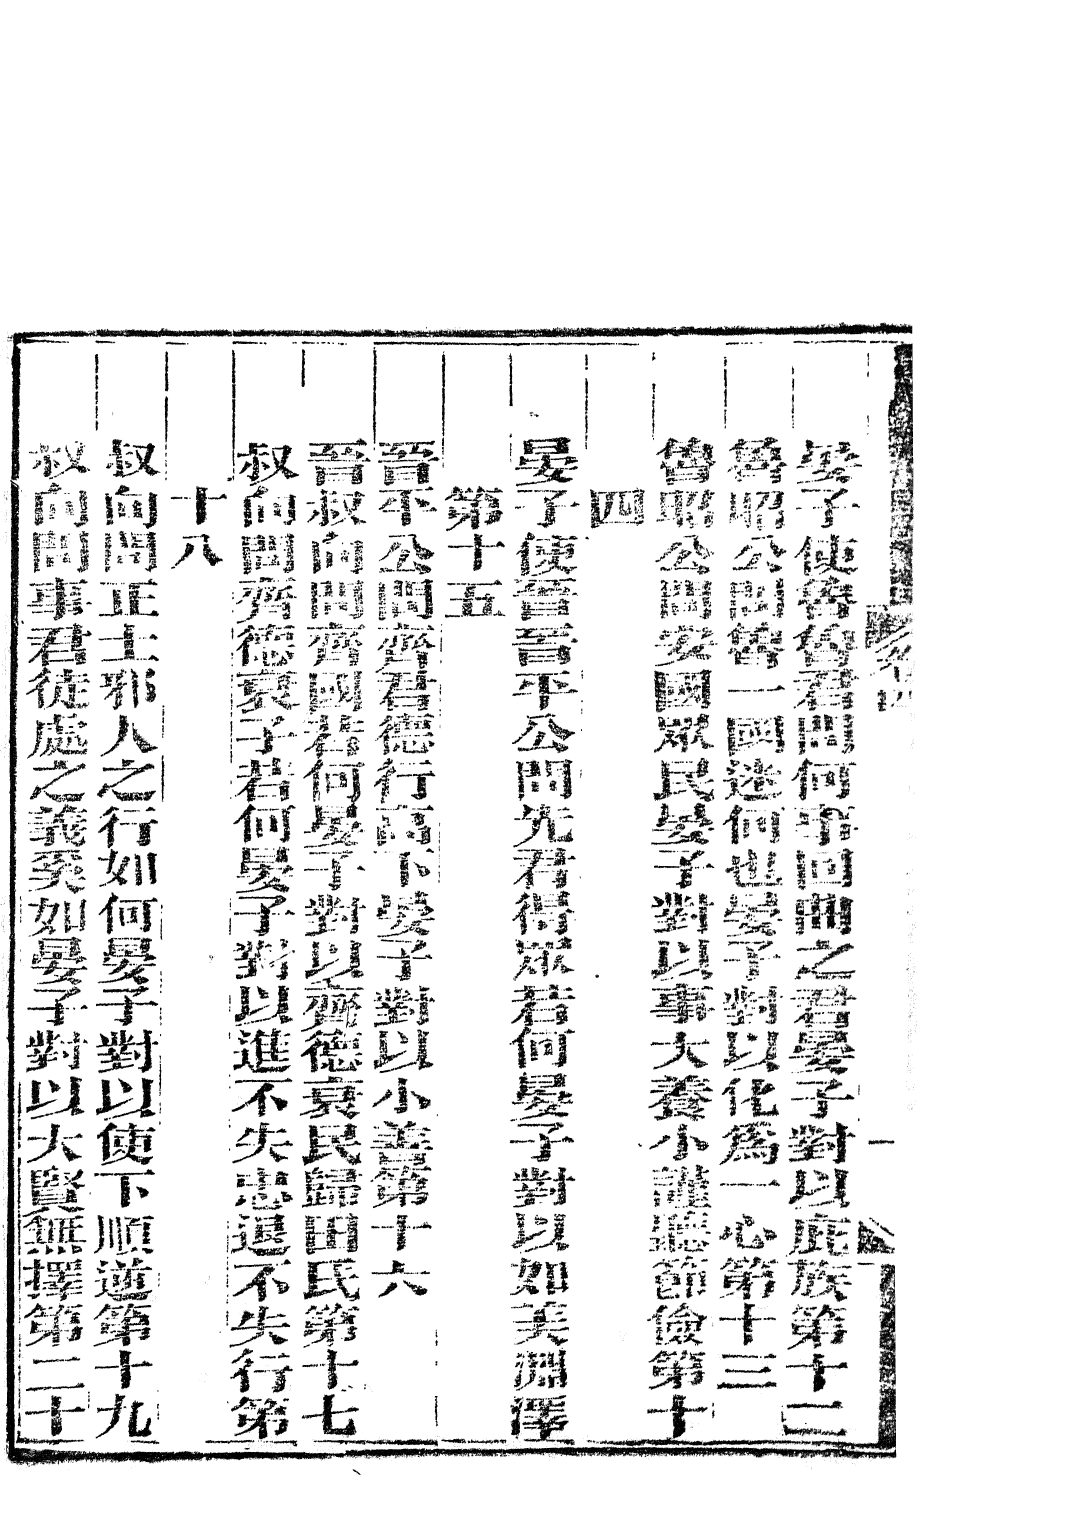 晏子使魯魯君問何事回曲之君晏子對以庇族第十二
魯昭公問魯一國迷何也晏子對以化爲一心第十三
魯昭公問安國眾民晏子對以事大養小謹聽節儉第十
四
晏子使晉晉平公問先君得眾若何晏子對以如美淵澤
第十五
晉平公問齊君德行高下晏子對以小善第十六
晉叔向問齊國若何晏子對以齊德衰民歸田氏第十七
叔向問齊德衰子若何晏子對以進不失忠退不失行第
十八
叔向問正士邪人之行如何晏子對以使下順逆第十九
叔向問事君徒處之義奚如晏子對以大賢無擇第二十